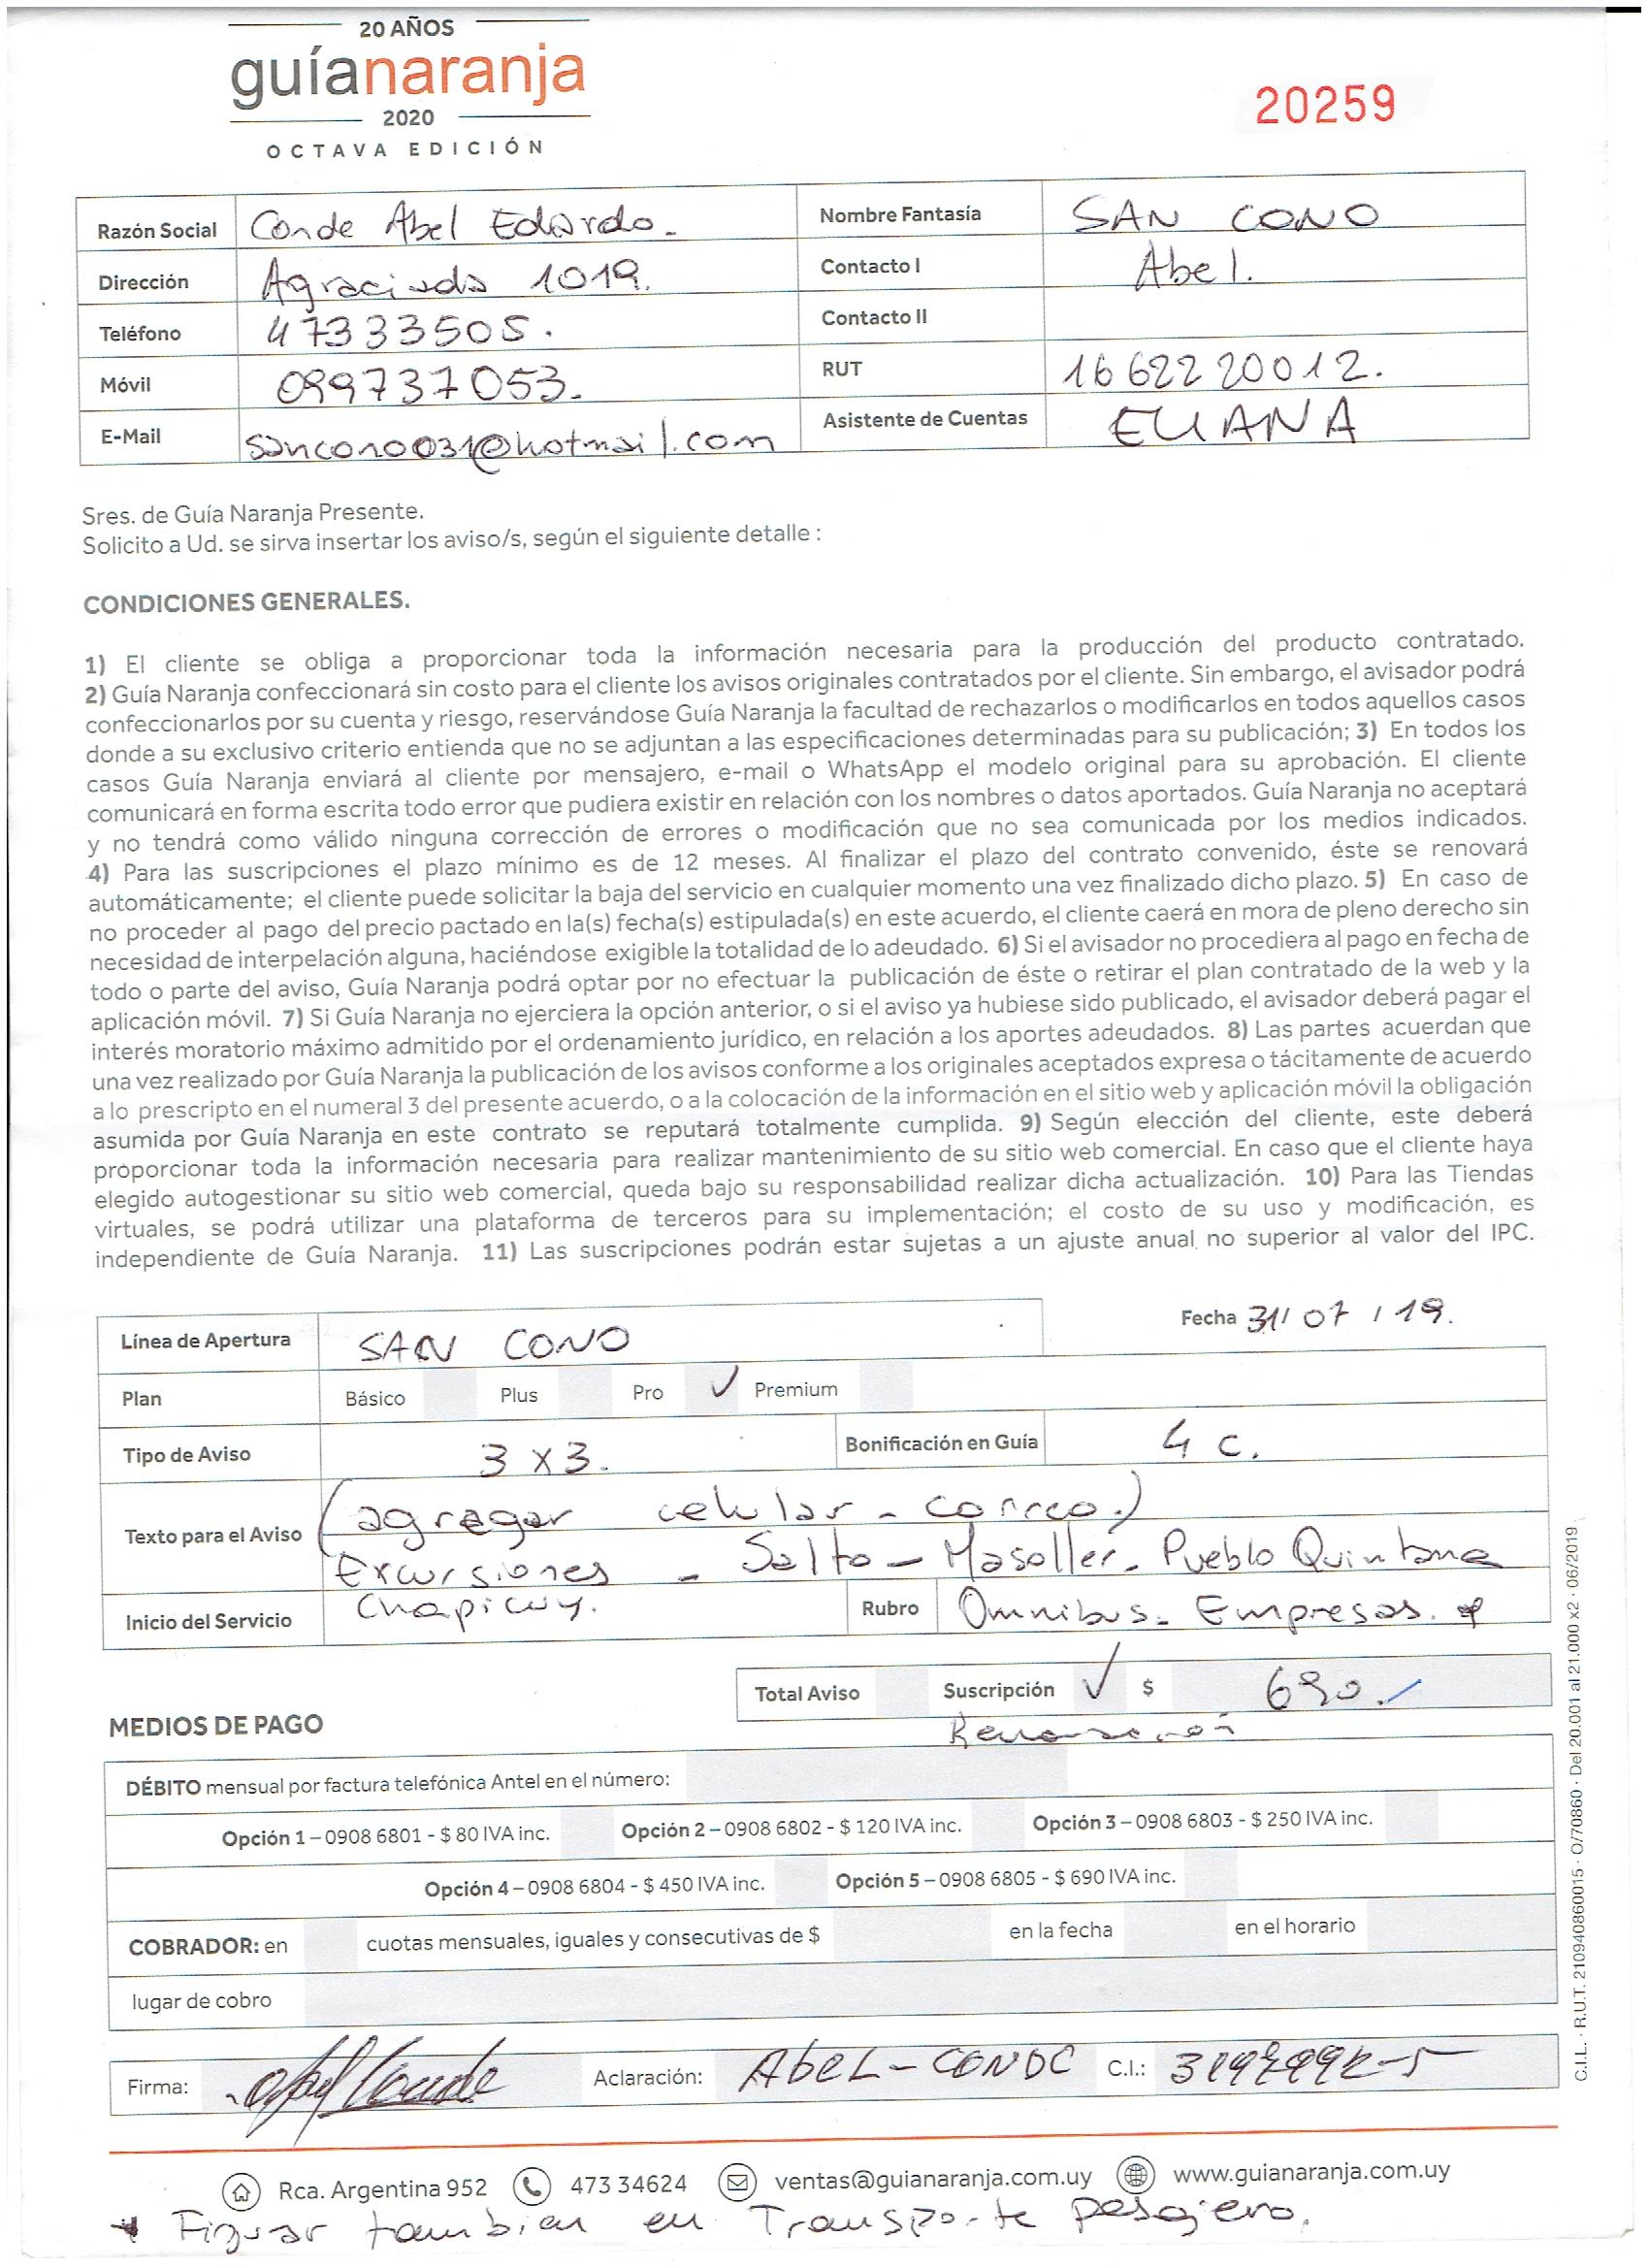 20 AÑOS
guíanaranja
2020
OCTAVA EDICIÓN
20259
Razón Social Conde Abel Edardo. Nombre Fantasía SAN CONO
Dirección Agraciada 1019. Contacto I Abel.
Teléfono 47333505. Contacto II
Móvil 099737053. RUT 166222 20012.
E-Mail sancono031@hotmail.com Asistente de Cuentas ELIANA
Sres. de Guía Naranja Presente.
Solicito a Ud. se sirva insertar los aviso/s, según el siguiente detalle :
CONDICIONES GENERALES.
1) El cliente se obliga a proporcionar toda la información necesaria para la producción del producto contratado.
2) Guía Naranja confeccionará sin costo para el cliente los avisos originales contratados por el cliente. Sin embargo, el avisador podrá
confeccionarlos por su cuenta y riesgo, reservándose Guía Naranja la facultad de rechazarlos o modificarlos en todos aquellos casos
donde a su exclusivo criterio entienda que no se adjuntan a las especificaciones determinadas para su publicación; 3) En todos los
casos Guía Naranja enviará al cliente por mensajero, e-mail o WhatsApp el modelo original para su aprobación. El cliente
comunicará en forma escrita todo error que pudiera existir en relación con los nombres o datos aportados. Guía Naranja no aceptará
y no tendrá como válido ninguna corrección de errores o modificación que no sea comunicada por los medios indicados.
4) Para las suscripciones el plazo mínimo es de 12 meses. Al finalizar el plazo del contrato convenido, éste se renovará
automáticamente; el cliente puede solicitar la baja del servicio en cualquier momento una vez finalizado dicho plazo. 5) En caso de
no proceder al pago del precio pactado en la(s) fecha(s) estipulada(s) en este acuerdo, el cliente caerá en mora de pleno derecho sin
necesidad de interpelación alguna, haciéndose exigible la totalidad de lo adeudado. 6) Si el avisador no procediera al pago en fecha de
todo o parte del aviso, Guía Naranja podrá optar por no efectuar la publicación de éste o retirar el plan contratado de la web y la
aplicación móvil. 7) Si Guía Naranja no ejerciera la opción anterior, o si el aviso ya hubiese sido publicado, el avisador deberá pagar el
interés moratorio máximo admitido por el ordenamiento jurídico, en relación a los aportes adeudados. 8) Las partes acuerdan que
una vez realizado por Guía Naranja la publicación de los avisos conforme a los originales aceptados expresa o tácitamente de acuerdo
a lo prescripto en el numeral 3 del presente acuerdo, o a la colocación de la información en el sitio web y aplicación móvil la obligación
asumida por Guía Naranja en este contrato se reputará totalmente cumplida. 9) Según elección del cliente, este deberá
proporcionar toda la información necesaria para realizar mantenimiento de su sitio web comercial. En caso que el cliente haya
elegido autogestionar su sitio web comercial, queda bajo su responsabilidad realizar dicha actualización. 10) Para las Tiendas
virtuales, se podrá utilizar una plataforma de terceros para su implementación; el costo de su uso y modificación, es
independiente de Guía Naranja. 11) Las suscripciones podrán estar sujetas a un ajuste anual no superior al valor del IPC.
Fecha 31/ 07 / 19.
Línea de Apertura SAN CONO
Plan Básico Plus Pro ✓ Premium
Tipo de Aviso 3 x 3. Bonificación en Guía 4 c.
Texto para el Aviso (agregar celular - correo.)
Excursiones - Salto - Masoller - Pueblo Quintana
Chapicuy.
Inicio del Servicio Rubro Omnibus - Empresas. *
Total Aviso Suscripción ✓ $ 690.
MEDIOS DE PAGO
DÉBITO mensual por factura telefónica Antel en el número:
Opción 1 – 0908 6801 - $ 80 IVA inc. Opción 2 – 0908 6802 - $ 120 IVA inc. Opción 3 – 0908 6803 - $ 250 IVA inc.
Opción 4 – 0908 6804 - $ 450 IVA inc. Opción 5 – 0908 6805 - $ 690 IVA inc.
COBRADOR: en cuotas mensuales, iguales y consecutivas de $ en la fecha en el horario
lugar de cobro
Firma: Aclaración: AbEL - CONDE C.I.:
Rca. Argentina 952 473 34624 ventas@guianaranja.com.uy www.guianaranja.com.uy
* Figurar tambien en Transporte pasajero.
C.I.L. · R.U.T. 210940860015 · O/70860 · Del 20.001 al 21.000 x2 · 06/2019